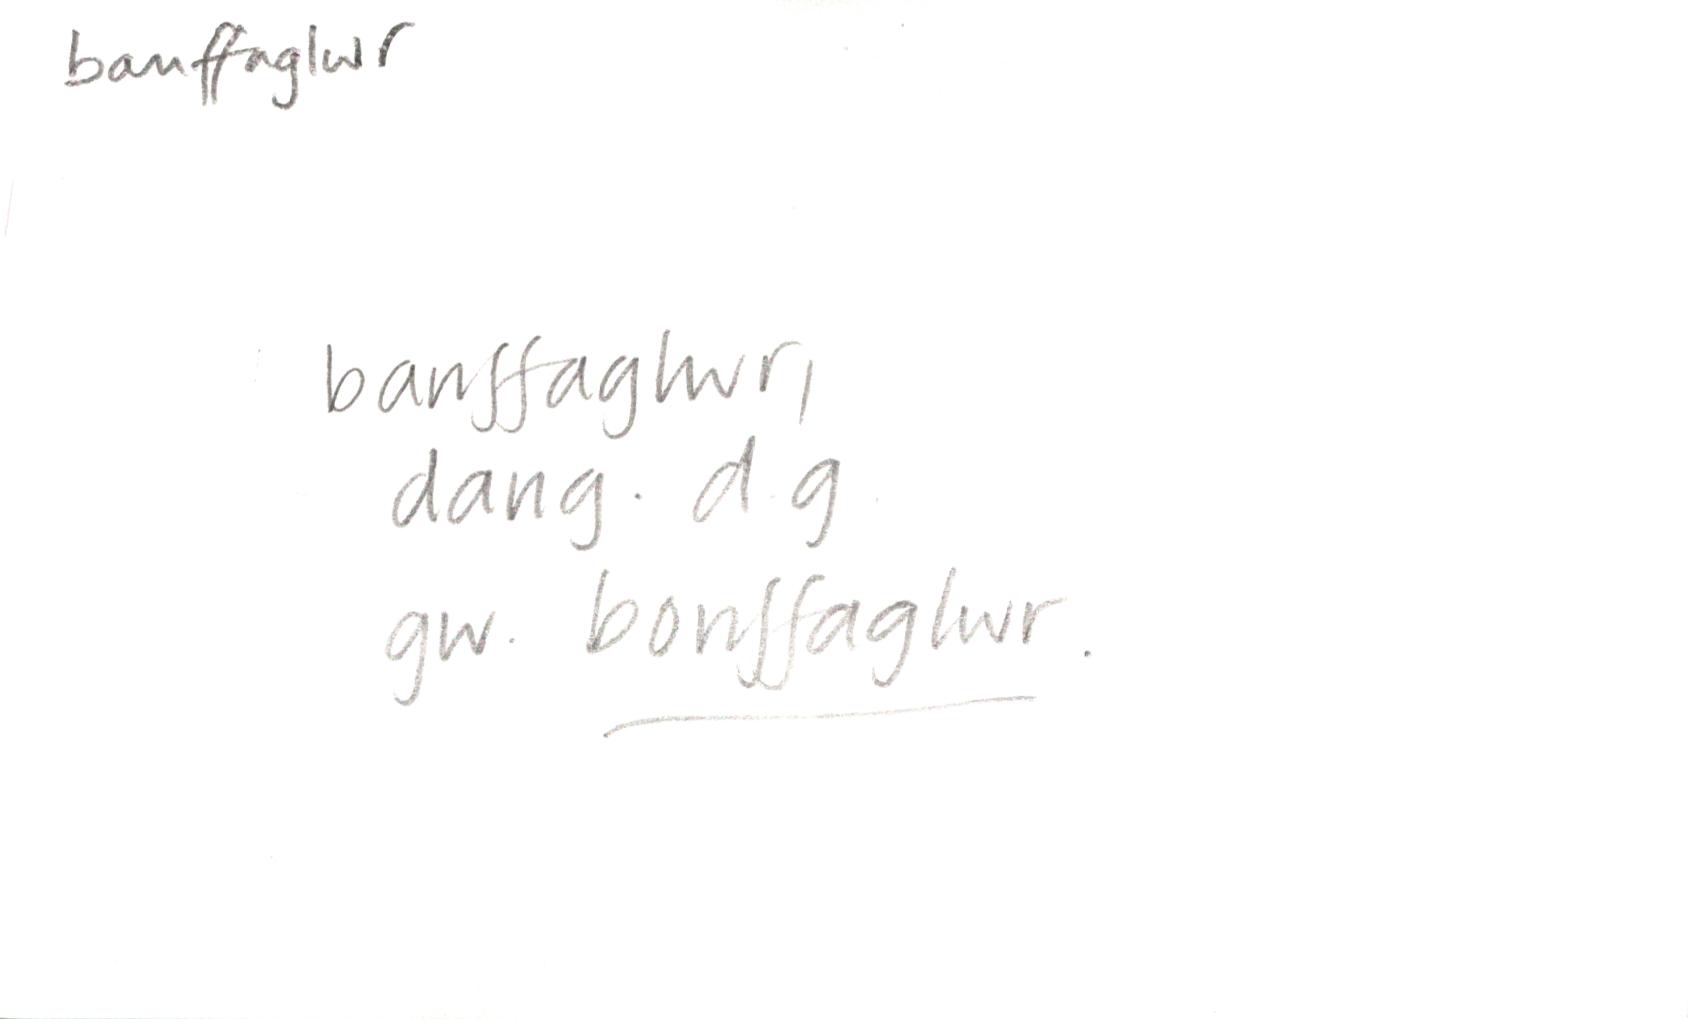 banffaglwr
banffaglwr,
dang. d.g.
gw. bonffaglwr.